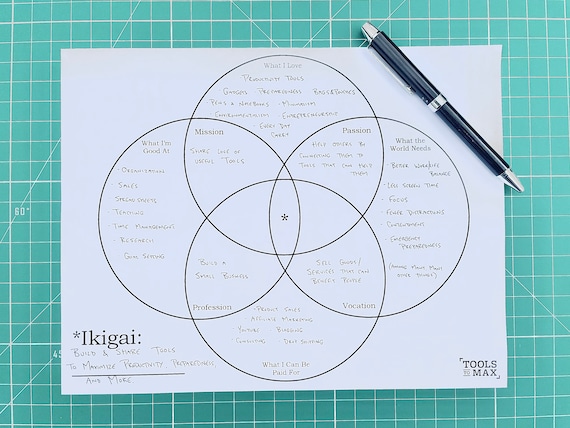 What I Love
Productivity Tools
Gadgets Preparedness Bags & Pouches
Pens & Notebooks - Minimalism
- Entrepreneurship
Every Day
Carry
Mission
Share love of
useful tools
Passion
Help others by
connecting them to
tools that can help
them
What I'm
Good At
- Organization
Sales
Spread sheets
- Teaching
Time Management
- Research
Goal Setting
What the
World Needs
- Better work/life
balance
- Less screen time
- Focus
- Fewer distractions
- Contentment
- Emergency
Preparedness
(Among many many
other things!)
*
Build a
Small Business
Profession
Sell goods/
services that can
benefit people
Vocation
- Product Sales
Affiliate Marketing
YouTube Blogging
Consulting Drop shipping
What I Can Be
Paid For
*Ikigai:
Build & Share Tools
To Maximize Productivity, Preparedness
And More
TOOLS
TO MAX
60°
45